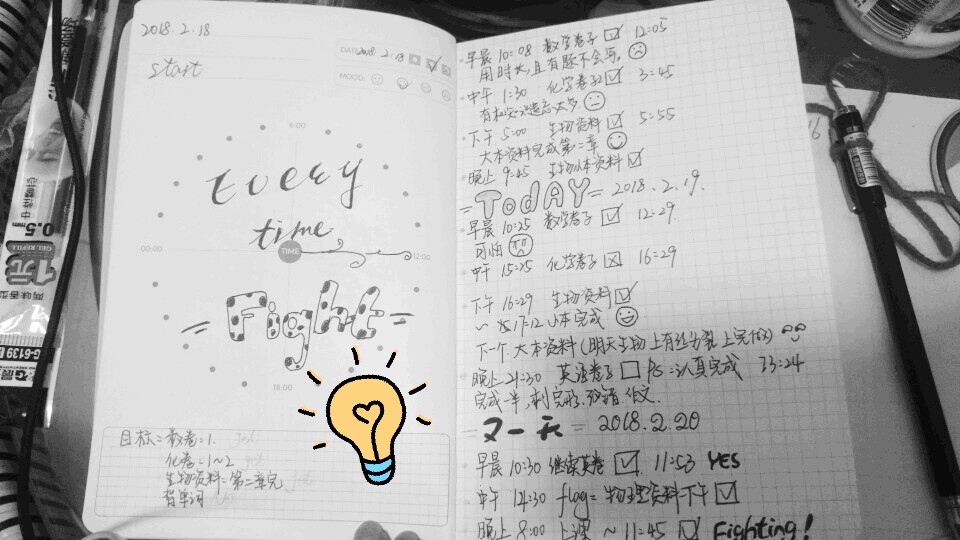 2018.2.18
start
DATE 2018 2 18
MOOD:
6:00
every
time
00:00
TIME
12:00
Fight
18:00
目标=数卷=1.
化卷=1~2
生物资料=第二章完
背单词
早晨 10:08 数学卷子 ☑ 12:05
用时长,且有题不会写。
中午 1:30 化学卷子 ☑ 3:45
下午 5:00 生物资料 ☑ 5:55
大本资料完成第二章
晚上 9:45 生物小本资料 ☑
=TodAY= 2018.2.19.
早晨 10:25 数学卷子 ☑ 12:29
可怕
中午 15:25 化学卷子 ☒ 16:29
下午 16:29 生物资料 ☑
~ 17:12 小本完成
下一个大本资料(明天生物上有丝分裂上完做)
晚上 21:30 英语卷子 □ PS=认真完成 23:24
完成一半,剩完形,改错,作文.
=又一天= 2018.2.20
早晨 10:30 继续英卷 ☑ 11:53 YES
中午 12:30 flag= 物理资料一下午 ☑
晚上 8:00 上课 ~ 11:45 ☑ Fighting!
0.5mm
GEL REFILL
1元
G-6139